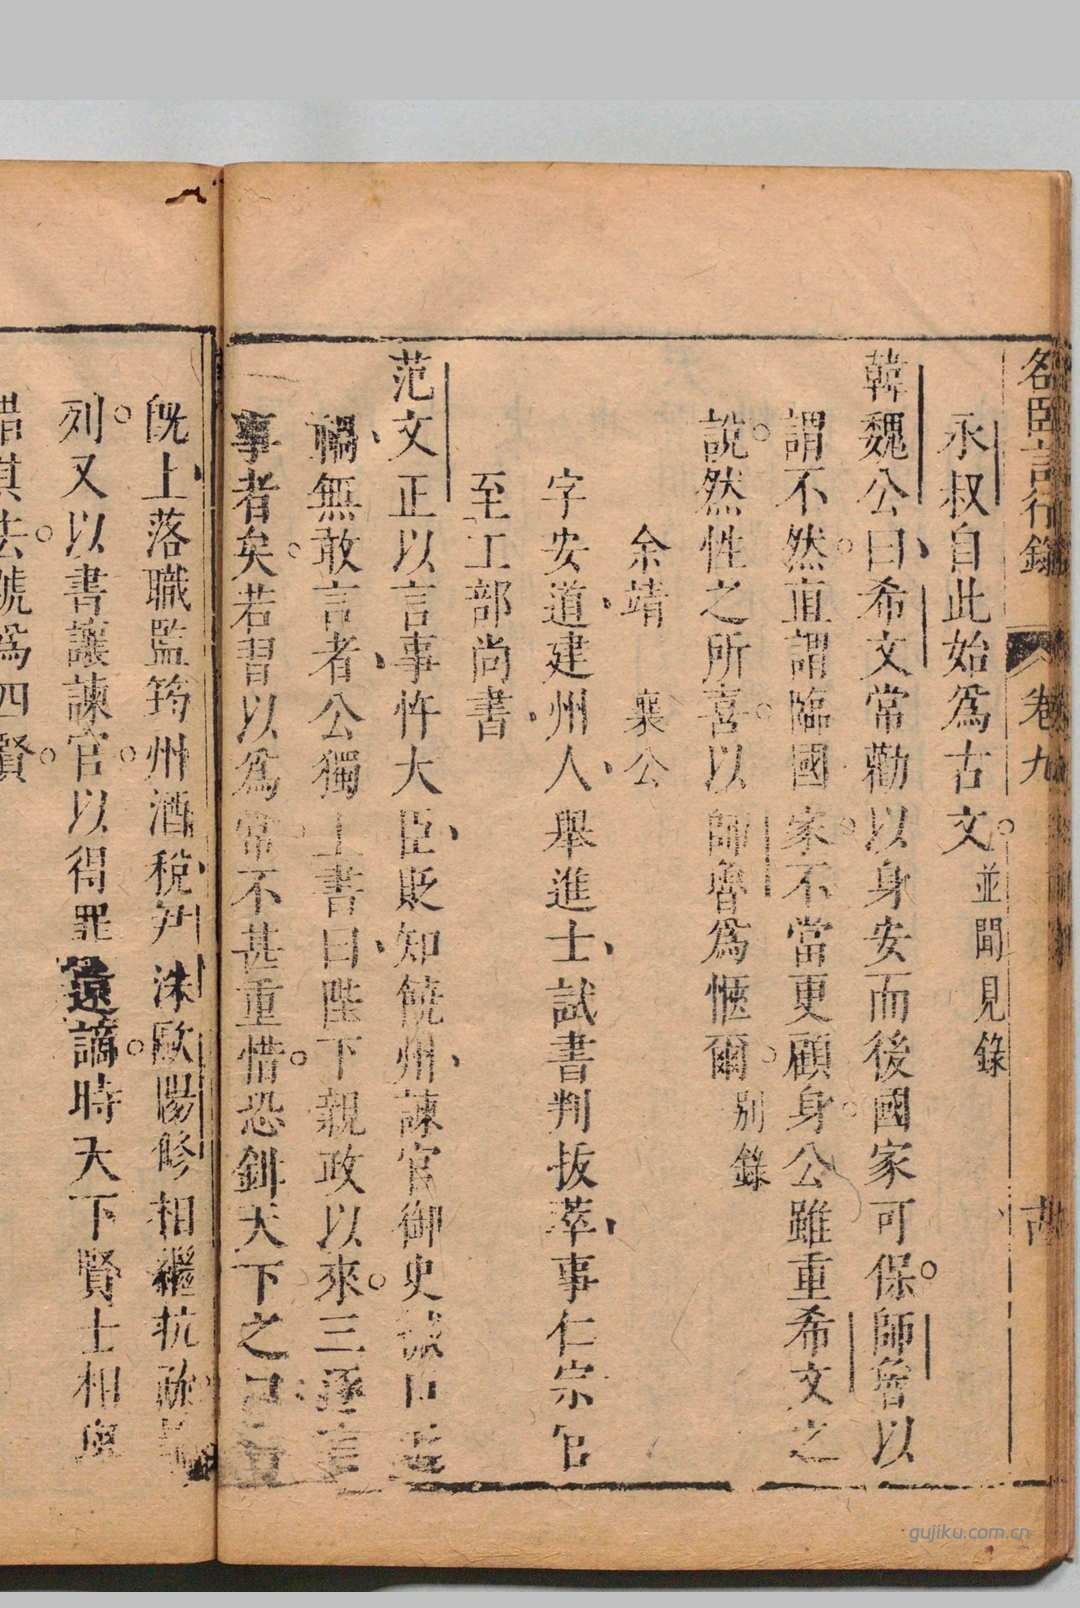 名臣言行錄 卷九
永叔自此始爲古文並聞見錄
韓魏公曰希文常勸以身安而後國家可保師魯以
謂不然直謂臨國家不當更顧身公雖重希文之
說然性之所喜以師魯爲愜爾別錄
余靖 襄公
字安道建州人舉進士試書判拔萃事仁宗官
至工部尚書
范文正以言事忤大臣貶知饒州諫官御史
禍無敢言者公獨上書曰陛下親政以來三逐言
事者矣若習以爲常不甚重惜恐鉗天下之口
旣上落職監筠州酒稅尹洙歐陽修相繼抗疏
列又以書讓諫官以得罪遠謫時天下賢士相與
惜其去號爲四賢
gujiku.com.cn